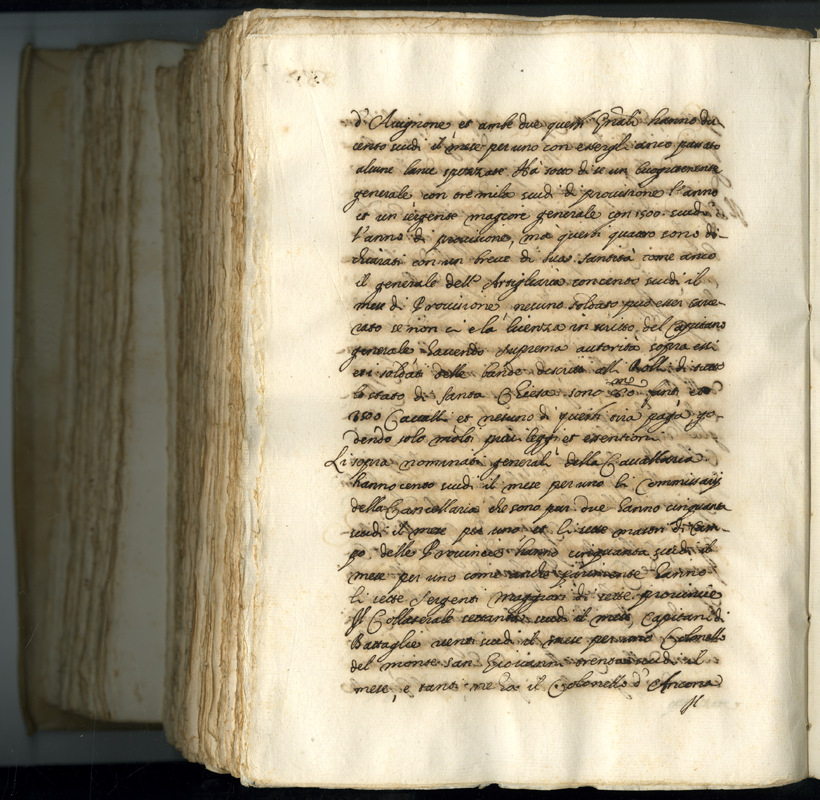 d'Auignone, et ambe due questi Gnali hanno du
cento scudi il mese per uno con essergli anco passato
alcune lance spezzate Hà sotto di se un luogotenente
generale con tre mila scudi di prouisione l'anno
et un sergente magiore generale con 1500 scudi
l'anno di prouisione, mà questi quatro sono di-
chiarati con un breue di Sua Santità come anco
il generale dell'Artigliaria con cento scudi il
mese di Prouisione, nesuno soldato può esser
se non ci è la licenza in scritto del Capitano
generale, hauendo suprema autorità sopra essi
et i soldati delle bande descritti alli Rolli di tutto
lo stato di Santa Chiesa sono 80 fanti et
3500 Caualli et nesuno di questi tira paga go-
dendo solo molti priuileggi et essentioni
Li sopra nominati generali della Cauallaria
hanno cento scudi il mese per uno li Commissarij
della Cancellaria che sono pur due hanno cinquanta
scudi il mese per uno et li sette mastri di Cam-
po delle Prouincie hanno cinquanta scudi il
mese per uno come anche hanno
li sette Sergenti maggiori di sette prouincie
Il Collaterale settanta scudi il mese, Capitani di
Battaglie uenti scudi il mese per uno Colonello
del monte San Giouanni trenta scudi il
mese, e tanti ne hà il Colonello d'Ancona
Il